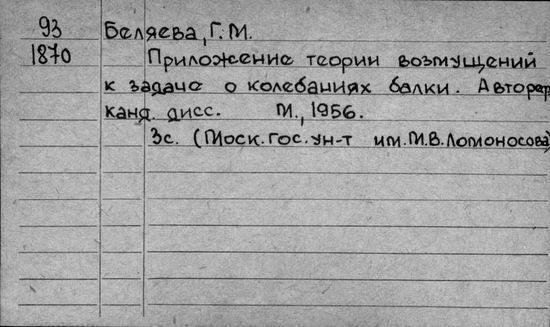 93 Беляева, Г.М.
1870 Приложение теории возмущений
к задаче о колебаниях балки. Автореф
канд. дисс. М., 1956.
3с. (Моск. гос. ун-т им. М.В. Ломоносова)